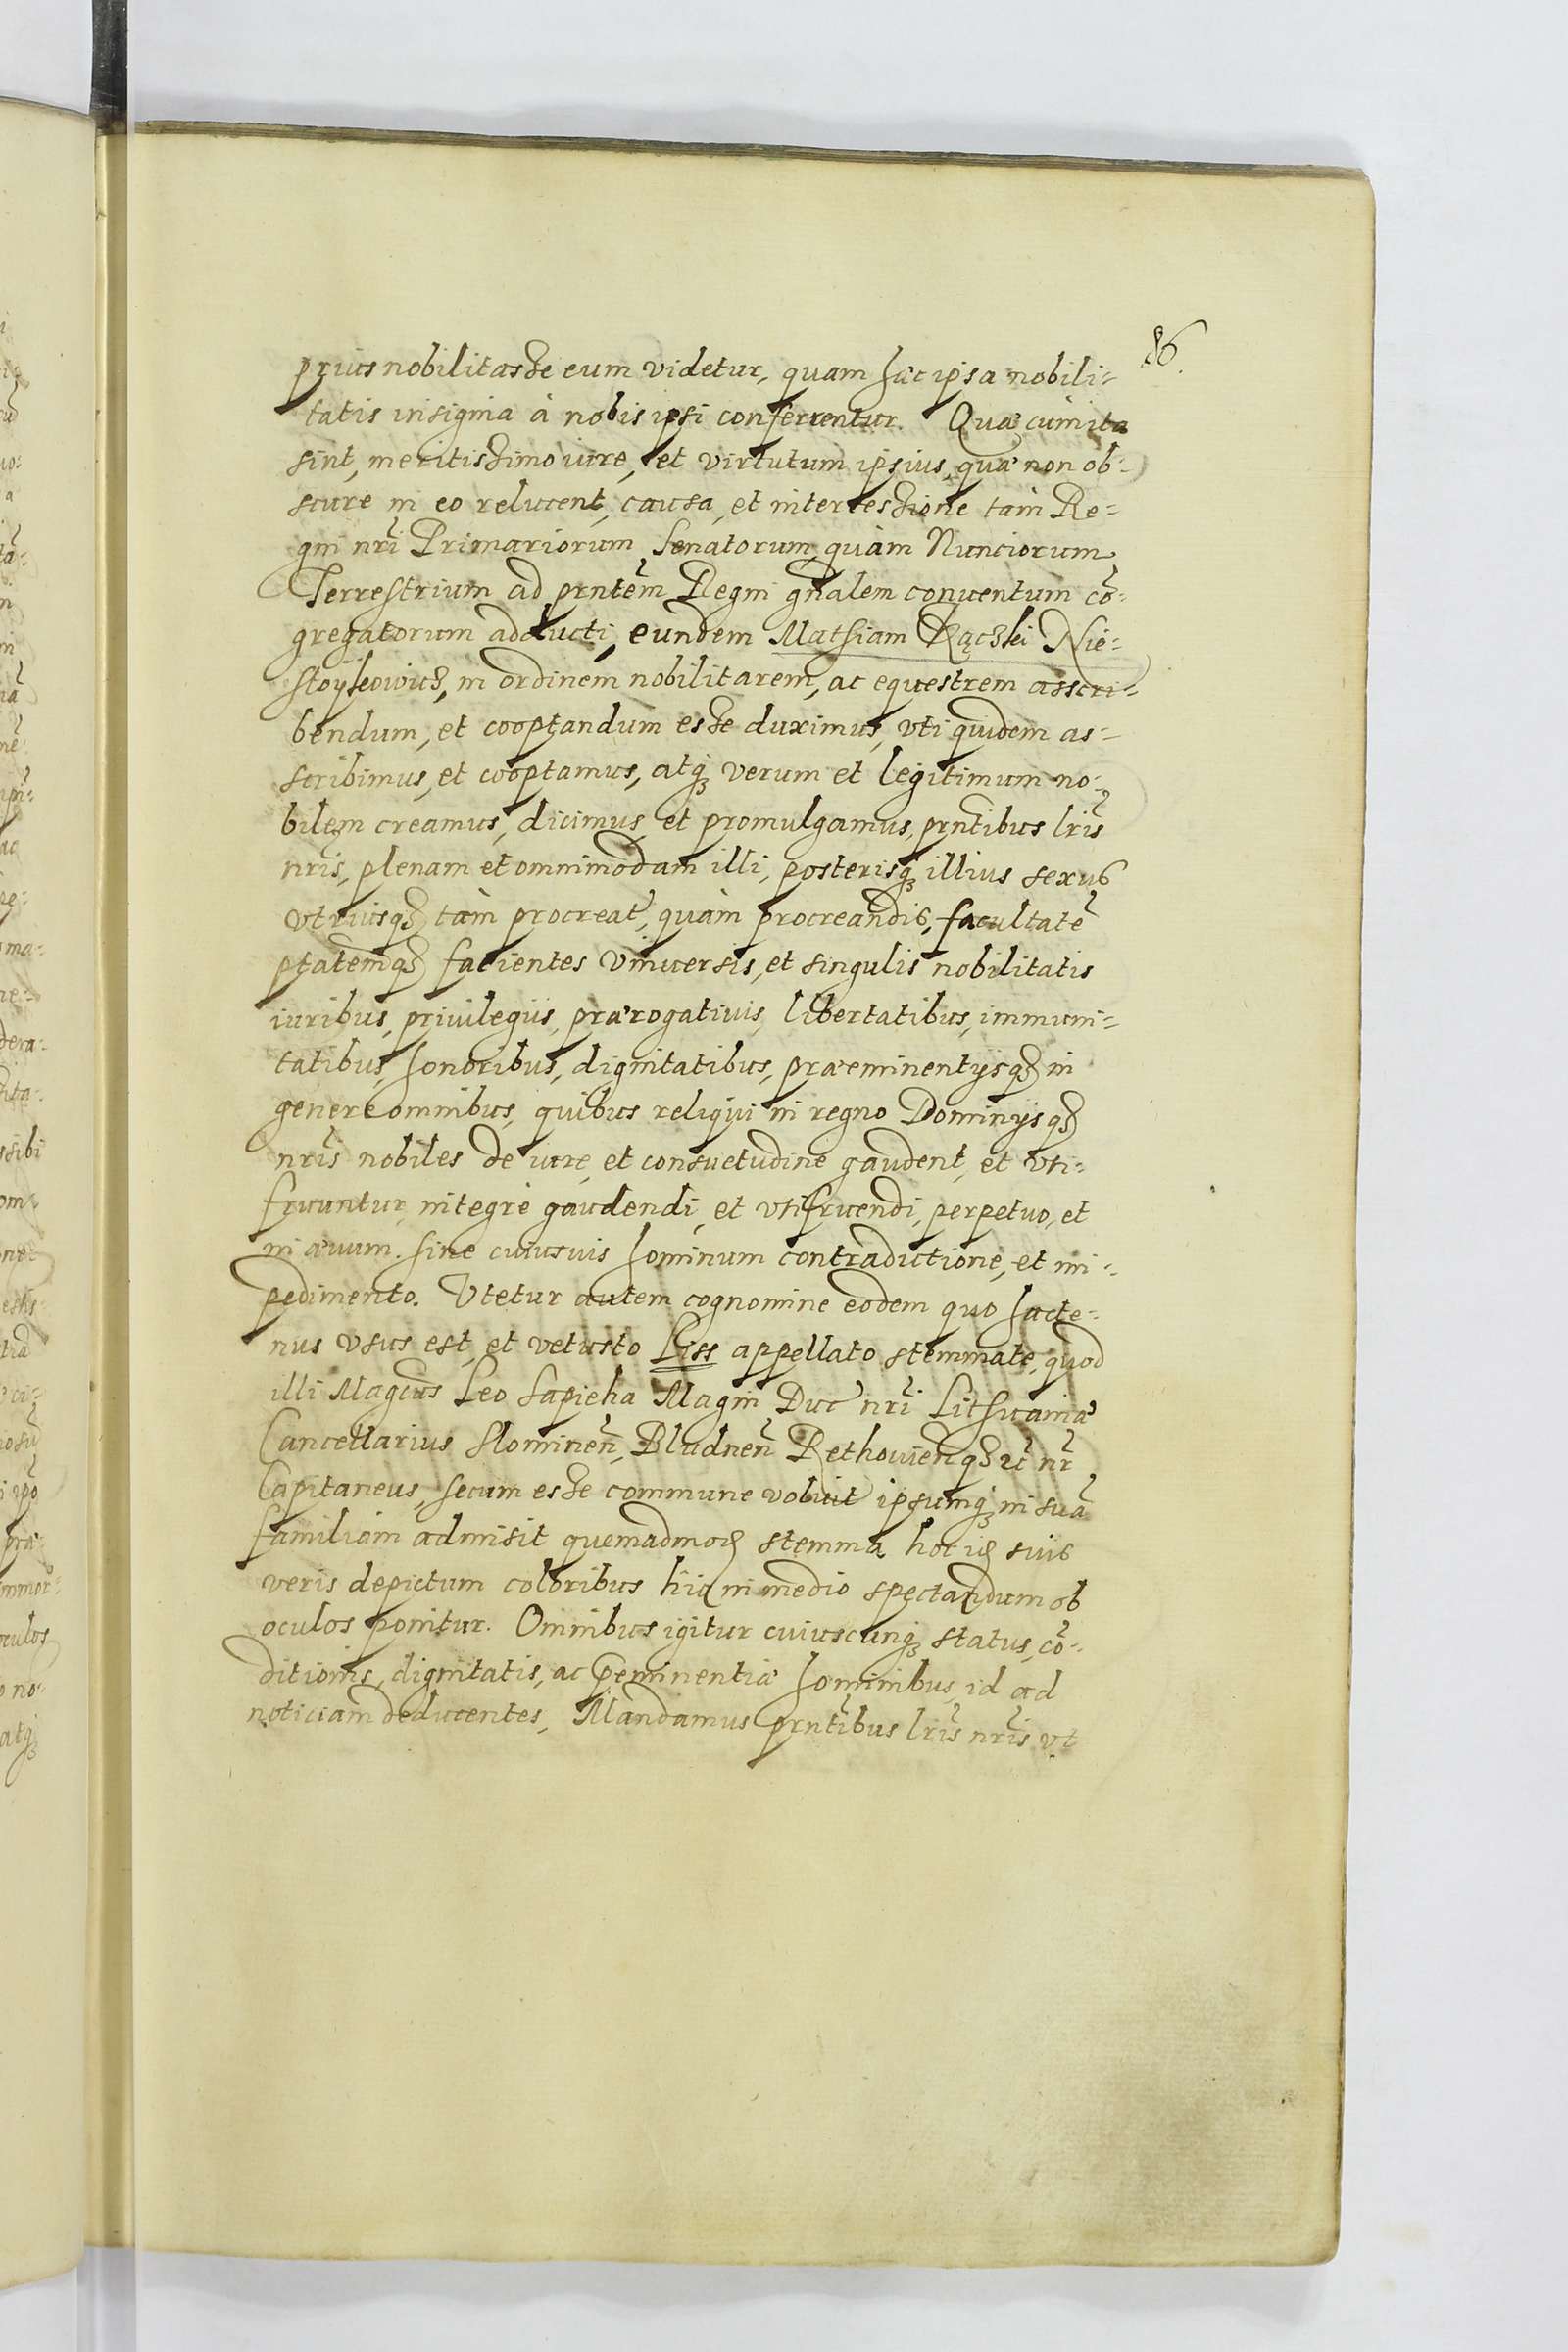 86.
prius nobilitasse eum videtur, quam hæc ipsa nobili-
tatis insignia à nobis ipsi conferrentur. Quæ cùm ita
sint, meritissimo iure, et virtutum ipsius, quæ non ob-
scure in eo relucent, causa, et intercessione tàm Re-
gni nr̃i Primariorum Senatorum, quàm Nunciorum
Terrestrium ad prnte͂m Regni gñalem conuentum cõ-
gregatorum adducti, eundem Mathiam Rączki Nie-
stoykowicz, in ordinem nobilitarem, ac equestrem asscri-
bendum, et cooptandum esse duximus, vti quidem as-
scribimus, et cooptamus, atq; verum et legitimum no-
bilem creamus, dicimus, et promulgamus, prñtibus lr̃is
nr̃is, plenam et omnimodam illi, posterisq; illius sexus
vtriusq; tàm procreat̃, quàm procreandis, facultatẽ
ptatemq; facientes Vniuersis, et singulis nobilitatis
iuribus, priuilegijs, prærogatiuis, libertatibus, immuni-
tatibus, honoribus, dignitatibus, præeminentijsq; in
genere omnibus, quibus reliqui in regno Dominijsq;
nr̃is nobiles de iure, et consuetudine gaudent, et vti-
fruuntur, integrè gaudendi, et vtifruendi, perpetuo, et
in æuum. sine cuiusuis hominum contradictione, et im-
pedimento. Vtetur autem cognomine eodem quo hacte-
nus vsus est, et vetusto Liss appellato stemmate, quod
illi Magcus Leo Sapieha Magni Duc̃ nr̃i Lithuaniæ
Cancellarius Slominen̄, Bludnen̄ Rethouienq; ec̃ nr̃
Capitaneus, secum esse commune voluit ipsumq; in suã
familiam admisit quemadmod; stemma hoc id; suis
veris depictum coloribus hîc in medio spectandum ob
oculos ponitur. Omnibus igitur cuiuscunq; status, cõ-
ditionis, dignitatis, ac peminentiæ hominibus, id ad
noticiam deducentes, Mandamus prñtibus lr̃is nr̃is vt